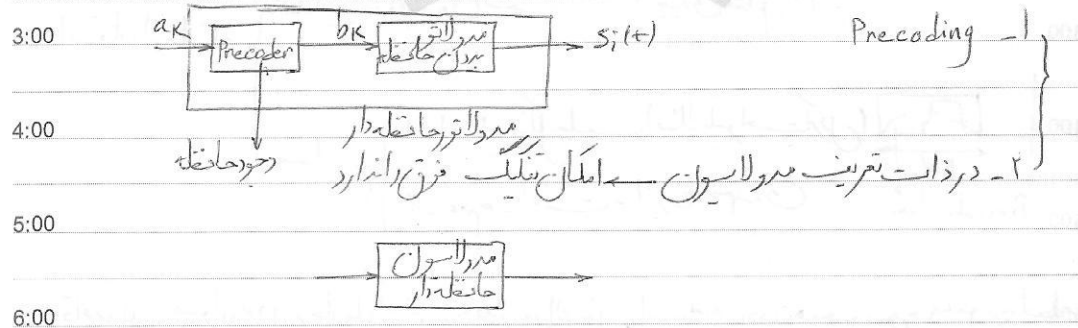 3:00
۱- Precoding
aₖ Precoder bₖ مدولاتور بدون حافظه sᵢ(t)
4:00
مدولاتور حافظه‌دار
وجود حافظه
۲- در ذات تعریف مدولاسیون ← امکان تفکیک فوق را ندارد
5:00
مدولاسیون حافظه‌دار
6:00